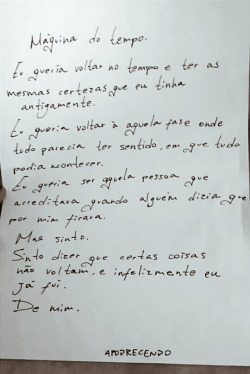 Máquina do tempo.
Eu queria voltar no tempo e ter as
mesmas certezas que eu tinha
antigamente.
Eu queria voltar à aquela fase onde
tudo parecia ter sentido, em que tudo
podia acontecer.
Eu queria ser aquela pessoa que
acreditava quando alguém dizia que
por mim ficara.
Mas sinto.
Sinto dizer que certas coisas
não voltam, e infelizmente eu
já fui.
De mim.
APODRECENDO